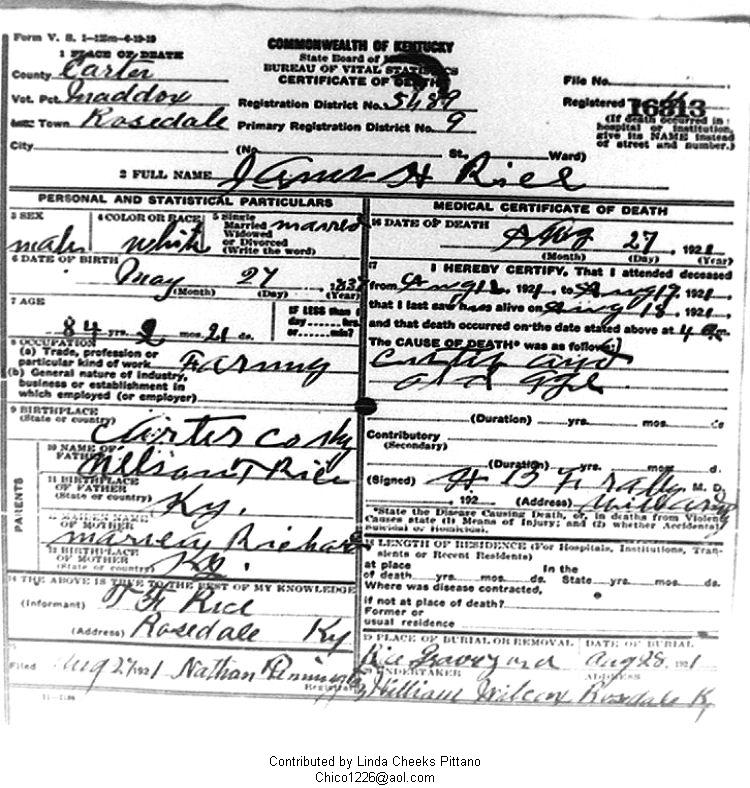 Form V. S. 1-12m-6-19-19
COMMONWEALTH OF KENTUCKY
State Board of
BUREAU OF VITAL STATISTICS
CERTIFICATE OF DEATH
1 PLACE OF DEATH
County Carter
Vot. Pct. Maddox
Town Rosedale
City
Registration District No. 5489
Primary Registration District No. 9
File No.
Registered
16313
(If death occurred in hospital or institution, give its NAME instead of street and number.)
(No. St., Ward)
2 FULL NAME James H Rice
PERSONAL AND STATISTICAL PARTICULARS
3 SEX male
4 COLOR OR RACE white
5 Single Married Widowed or Divorced (Write the word) married
6 DATE OF BIRTH May 27 1837
(Month) (Day) (Year)
7 AGE
84 yrs. 2 mos. 21 ds.
IF LESS than 1 day hrs. or min?
8 OCCUPATION
(a) Trade, profession or particular kind of work Farming
(b) General nature of industry, business or establishment in which employed (or employer)
9 BIRTHPLACE
(State or country) Carter Co Ky
PARENTS
10 NAME OF FATHER Nelson T Rice
11 BIRTHPLACE OF FATHER
(State or country) Ky.
12 MAIDEN NAME OF MOTHER
13 BIRTHPLACE OF MOTHER
(State or country) Ky.
14 THE ABOVE IS TRUE TO THE BEST OF MY KNOWLEDGE
(Informant) F Rice
(Address) Rosedale Ky
15
Filed Aug 27 1921 Nathan
Registrar
MEDICAL CERTIFICATE OF DEATH
16 DATE OF DEATH
Aug 27, 1921
(Month) (Day) (Year)
17
I HEREBY CERTIFY, That I attended deceased
from Aug 1921, to Aug 19, 1921,
that I last saw h alive on Aug 18, 1921,
and that death occurred on the date stated above at 4
The CAUSE OF DEATH* was as follows:
and
old age
(Duration) yrs. mos. ds
Contributory
(Secondary)
(Duration) yrs. mos. d.
(Signed) H B M. D.
, 192 (Address)
*State the Disease Causing Death, or, in deaths from Violent Causes state (1) Means of Injury; and (2) whether Accidental, Suicidal or Homicidal.
18 LENGTH OF RESIDENCE (For Hospitals, Institutions, Transients or Recent Residents)
at place of death yrs. mos. ds. In the State yrs. mos. ds.
Where was disease contracted,
if not at place of death?
Former or
usual residence
19 PLACE OF BURIAL OR REMOVAL
Rice Graveyard
DATE OF BURIAL
Aug 28, 1921
20 UNDERTAKER
William Wilcox
ADDRESS
Rosedale Ky
Contributed by Linda Cheeks Pittano
Chico1226@aol.com